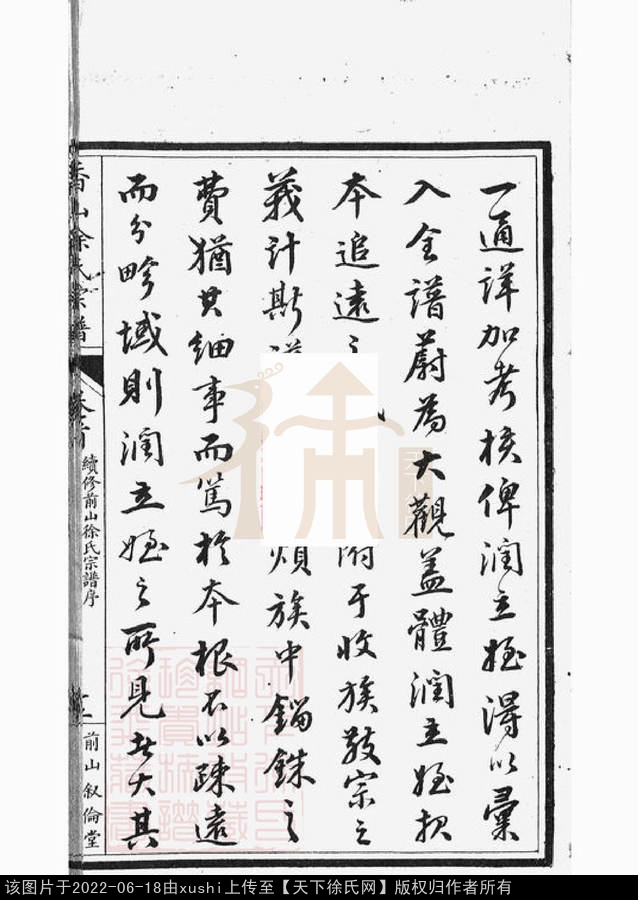 一通詳加考核俾潤立姪得以彙
入全譜蔚為大觀蓋體潤立姪報
本追遠之附于收族敬宗之
義計斯煩族中錙銖之
費猶其細事而篤於本根不以疎遠
而分畛域則潤立姪之所見者大其
香山徐氏宗譜
卷首
續修前山徐氏宗譜序
前山叙倫堂
该图片于2022-06-18由xushi上传至【天下徐氏网】版权归作者所有